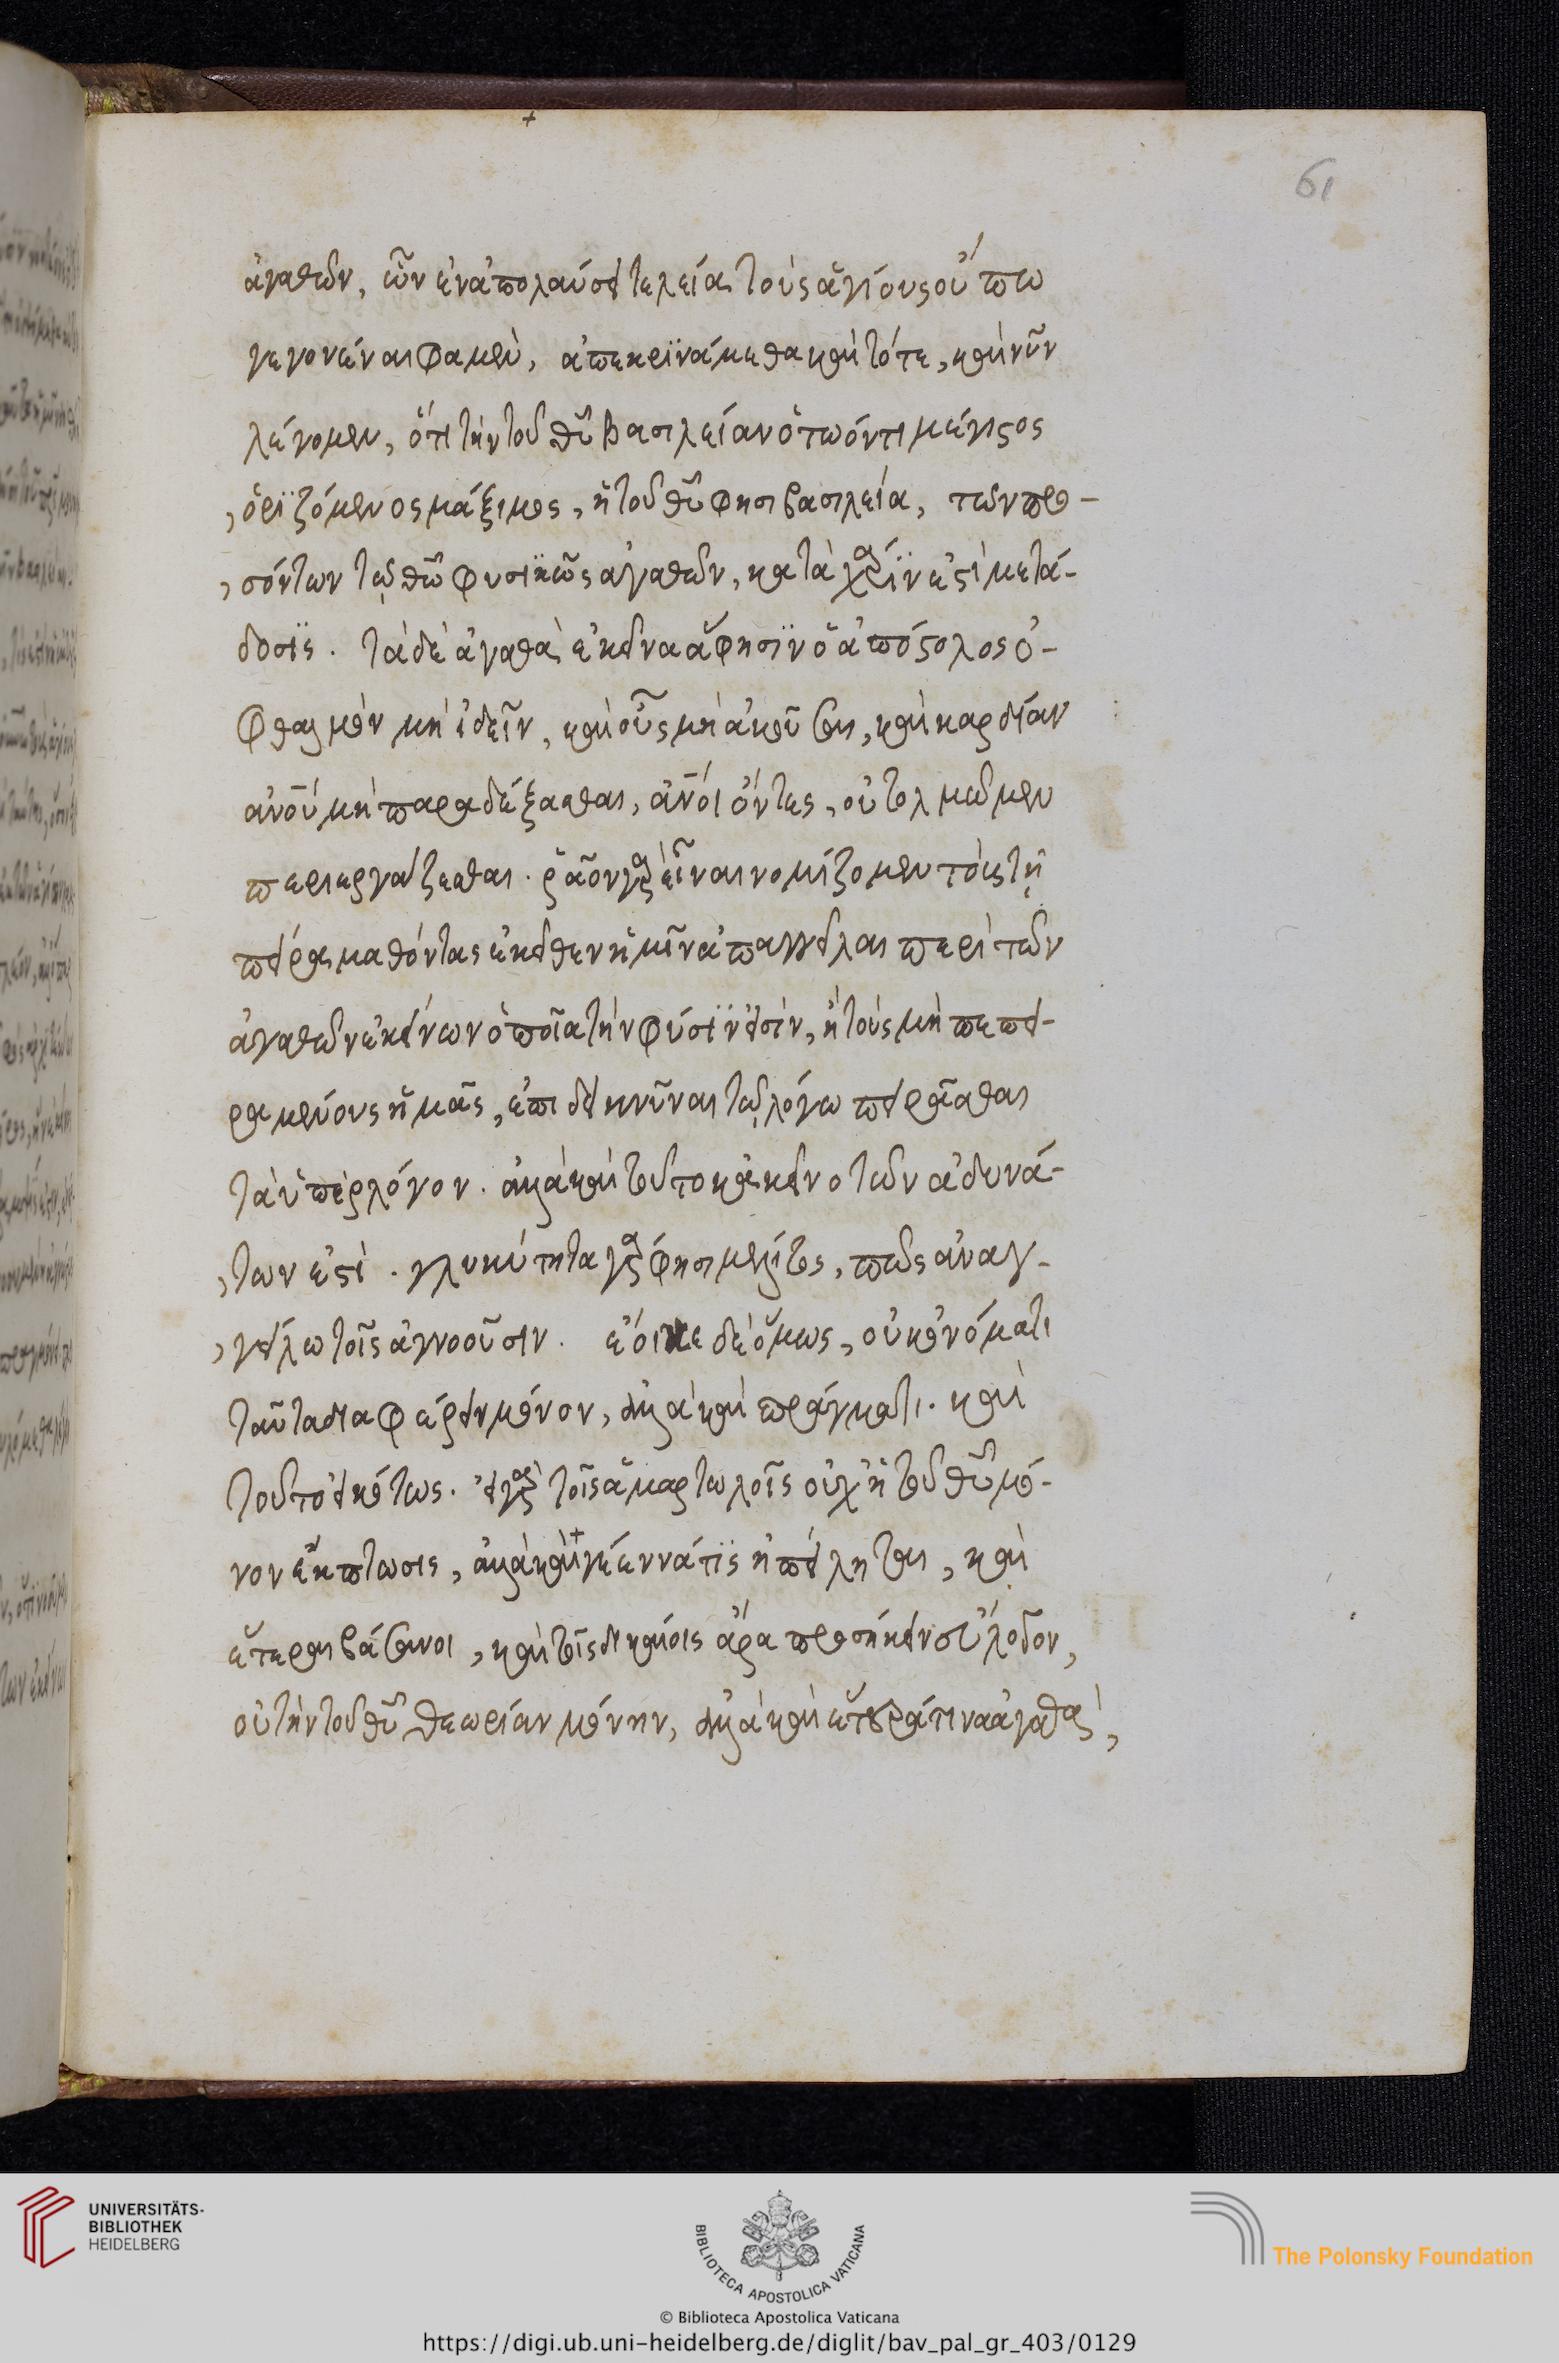 61
ἀγαθῶν, ὧν ἐν ἀπολαύσει τελεία τοὺς ἁγίους οὔπω
γεγονέναι φαμὲν, ἀπεκρϊνάμεθα καὶ τότε, καὶ νῦν
λέγομεν, ὅτι τὴν τοῦ θῦ βασιλείαν ὁ τω ὄντι μέγιστος
ὁρϊζόμενος μάξιμος, ἡ τοῦ θῦ φησι βασιλεία, τῶν προ-
σόντων τῷ θῶ φυσϊκῶς ἀγαθῶν, κατὰ χάρϊν ἐστὶ μετά-
δοσϊς. τὰ δὲ ἀγαθὰ ἐκεῖνα ἅ φησϊν ὁ ἀπόστολος ὀ-
φθαλμὸν μὴ ἰδεῖν, καὶ οὖς μὴ ἀκοῦσαι, καὶ καρδίαν
ἀνοῦ μὴ παραδέξασθαι, ἀνοι ὄντες, οὐ τολμῶμεν
περιεργάζεσθαι. ῥᾶον γὰρ εἶναι νομίζομεν τοὺς τῆ
πείρα μαθόντας ἐκεῖθεν ἡμῖν ἀπαγγεῖλαι περὶ τῶν
ἀγαθῶν ἐκείνων ὁποῖα τὴν φύσϊν εἰσὶν, ἢ τοὺς μὴ πεπει-
ραμένους ἡμᾶς, ἐπιδεικνῦναι τῷ λόγω πειρᾶσθαι
τὰ ὑπὲρ λόγον. ἀλλὰ καὶ τοῦτο κἀκεῖνο τῶν ἀδυνά-
των ἐστὶ. γλυκύτητα γάρ φησι μέλιτος, πῶς ἀναγ-
γείλω τοῖς ἀγνοοῦσιν. ἔοικε δὲ ὅμως, οὐκ ὀνόματι
ταῦτα διαφέρειν μόνον, ἀλλὰ καὶ πράγματι. καὶ
τοῦτο εἰκότως. εἰ γὰρ τοῖς ἁμαρτωλοῖς οὐχ ἡ τοῦ θῦ μό-
νον ἔκπτωσις, ἀλλὰ καὶ γέεννά τϊς ἠπείληται, καὶ
ἕτεραι βάσανοι, καὶ τοῖς δικαίοις ἄρα προσήκειν
οὐ τὴν τοῦ θῦ θεωρίαν μόνην, ἀλλὰ καὶ ἕτερά τινα ἀγαθὰ,
UNIVERSITÄTS-
BIBLIOTHEK
HEIDELBERG
BIBLIOTECA APOSTOLICA VATICANA
The Polonsky Foundation
© Biblioteca Apostolica Vaticana
https://digi.ub.uni-heidelberg.de/diglit/bav_pal_gr_403/0129